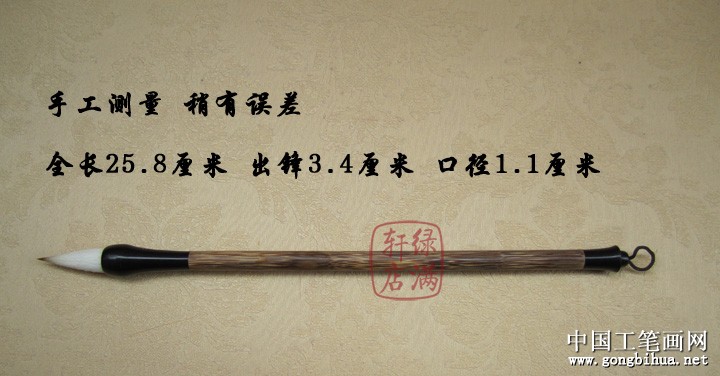 手工测量 稍有误差
全长25.8厘米 出锋3.4厘米 口径1.1厘米
绿满
轩店
中国工笔画网
www.gongbihua.net